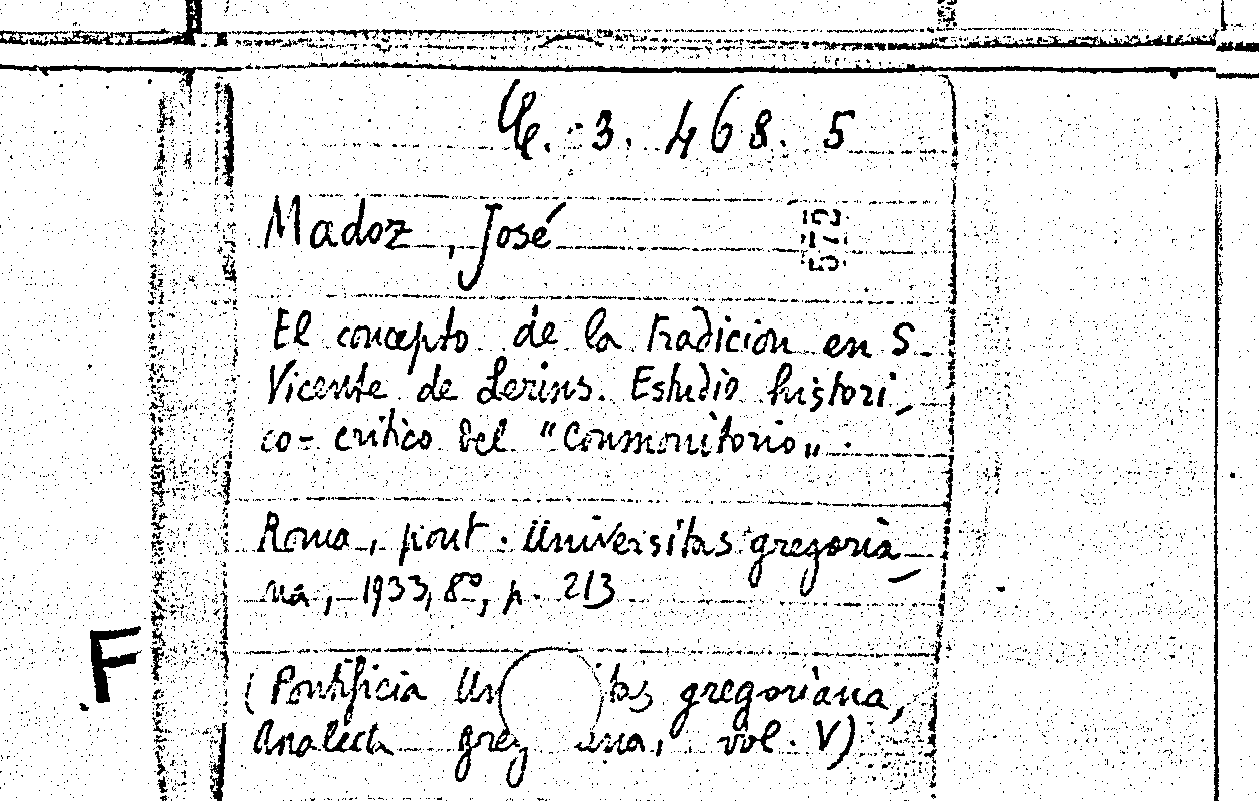 3. 468. 5
Madoz, José
572
El concepto de la tradicion en S.
Vicente de Lerins. Estudio histori-
co-critico del "Conmonitorio".
Roma, pont. Universitas gregoria-
na, 1933, 8º, p. 213
F
(Pontificia Un itas gregoriana,
Analecta greg ana, vol. V)